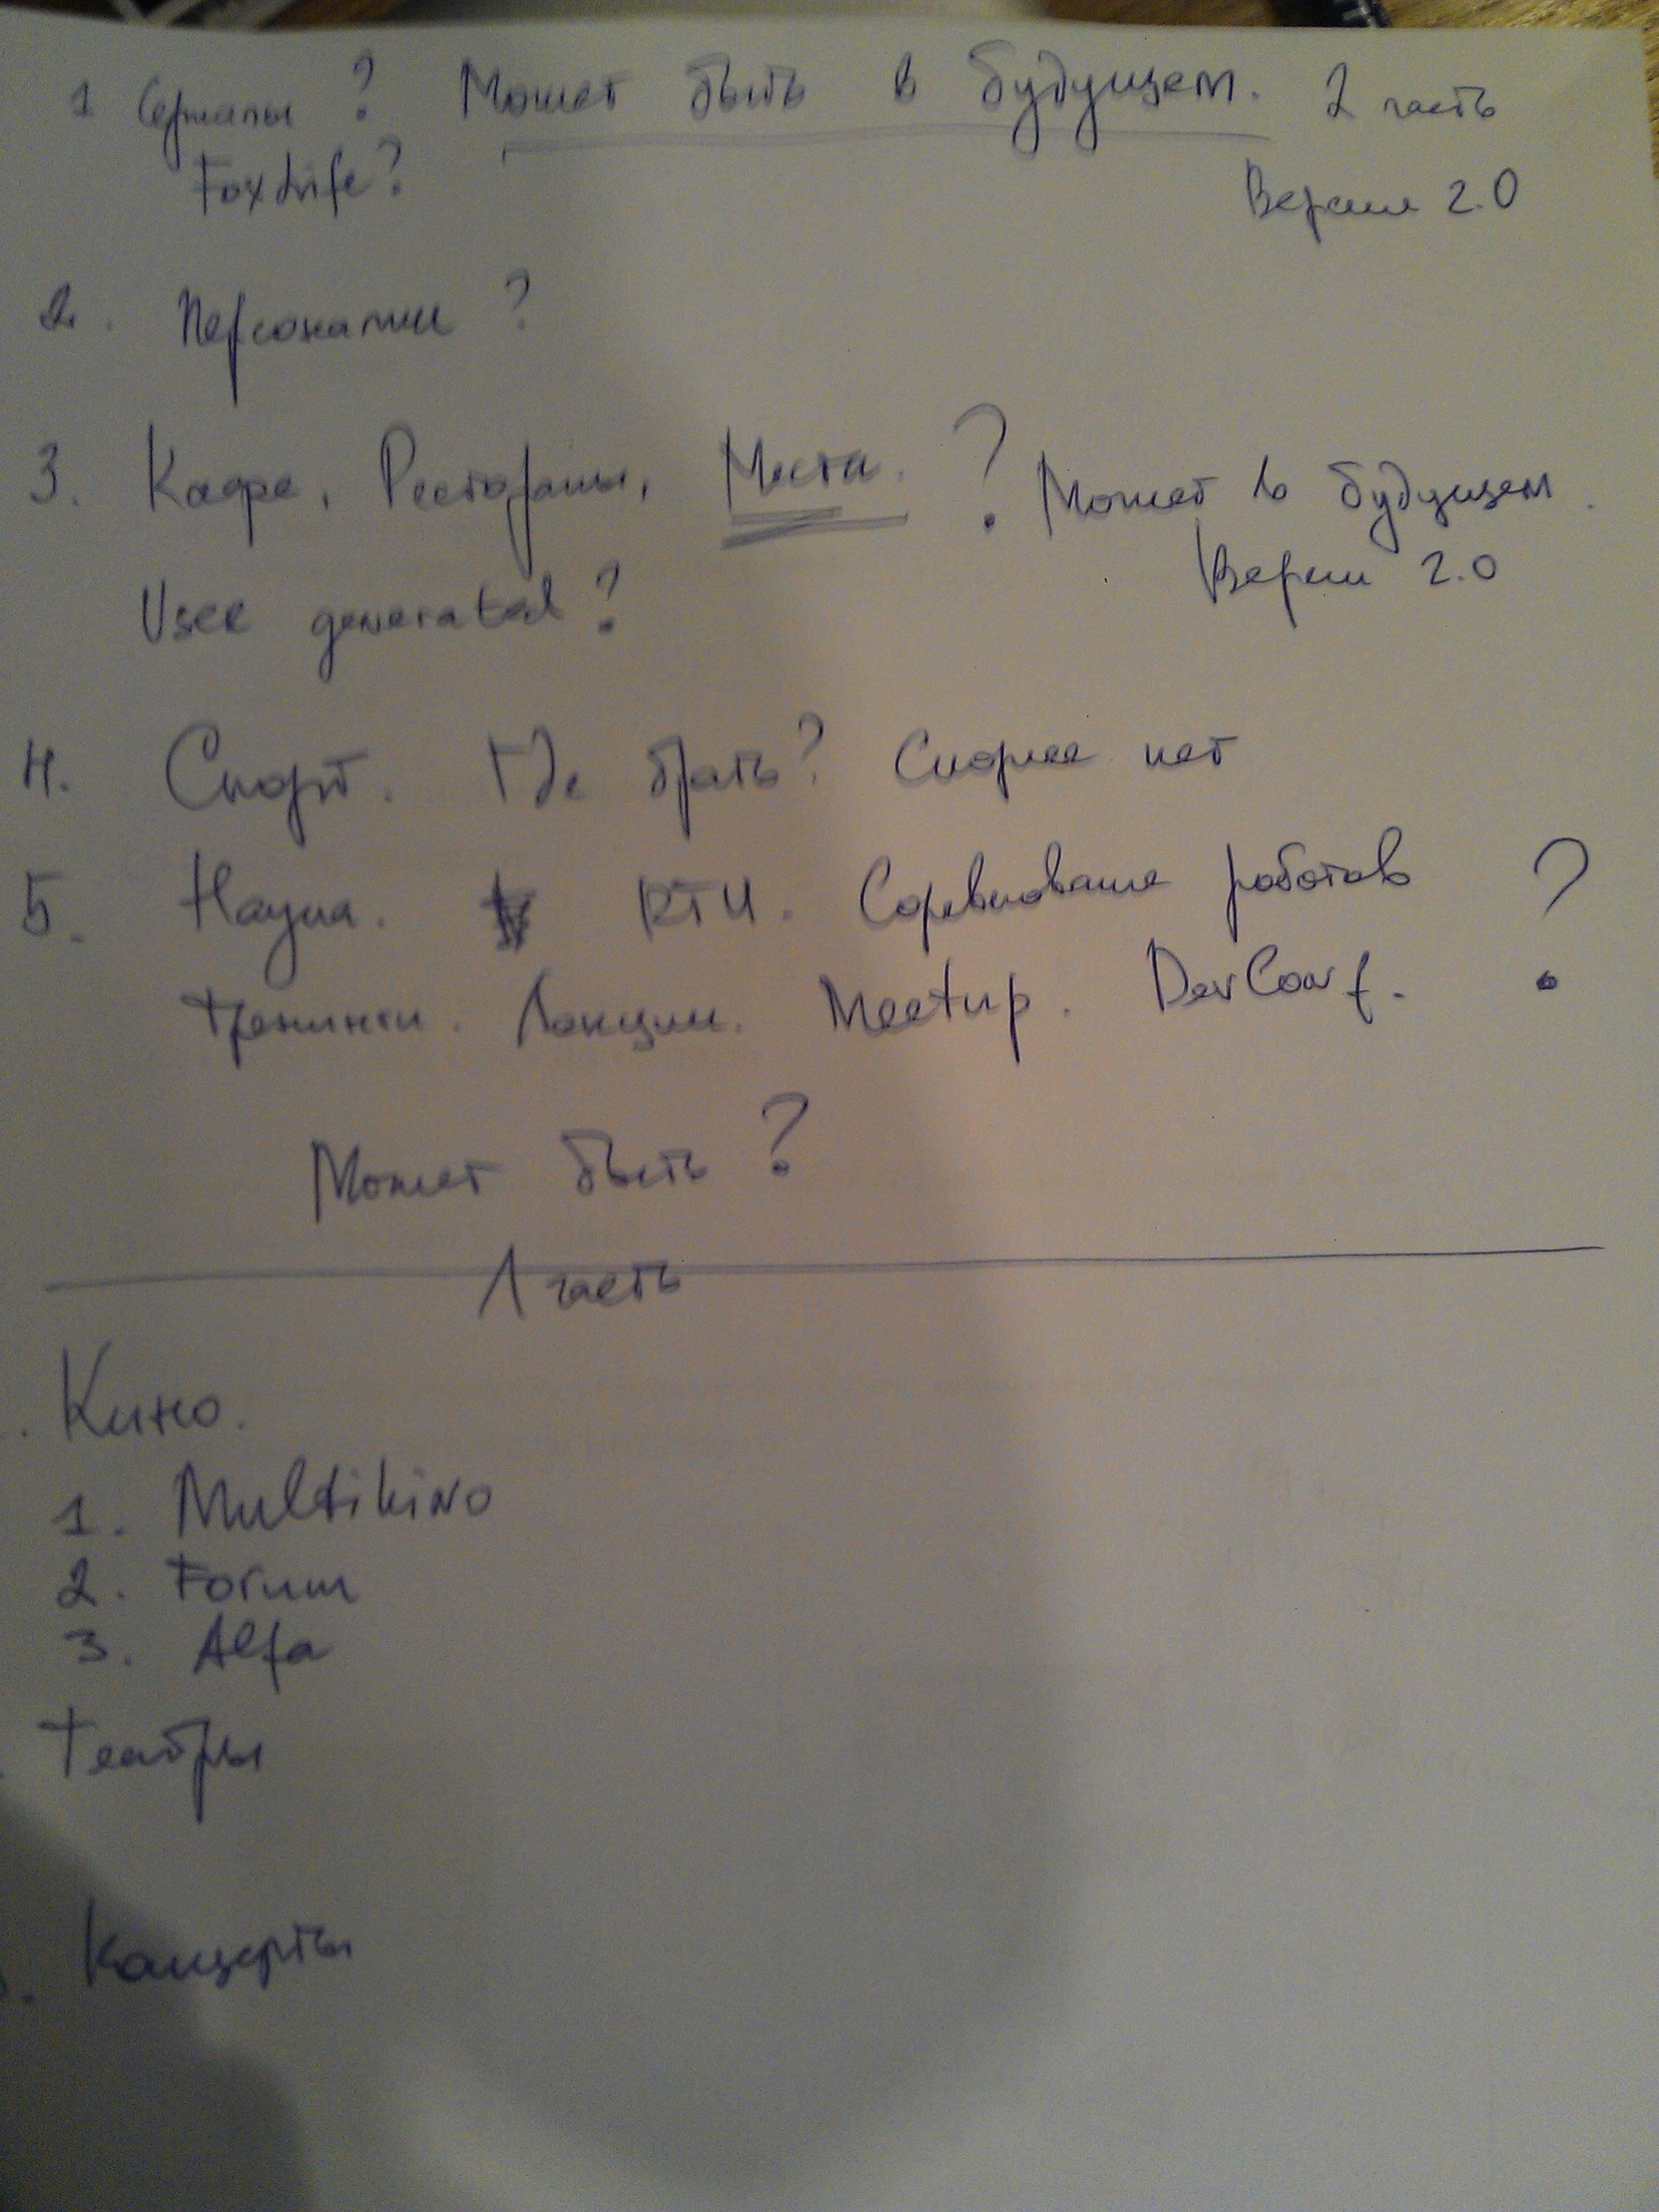 1 Сериалы ? Может быть в будущем. 2 часть
FoxLife? Версия 2.0
2. Персоналии ?
3. Кафе, Рестораны, Места. ? Может в будущем.
Версии 2.0
User generated?
4. Спорт. Где брать? Скорее нет
5. Наука. RTU. Соревнование роботов ?
Тренинги. Лекции. Meetup. DevConf.
Может быть ?
1 часть
Кино.
1. Multikino
2. Forum
3. Alfa
Театры
Концерты